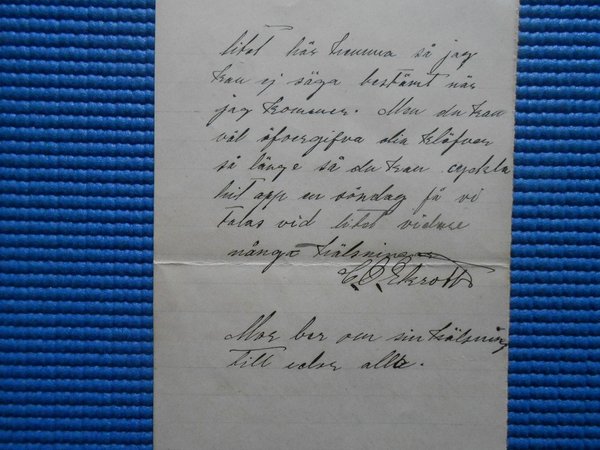 litet här hemma så jag
kan ej säga bestämt när
jag kommer. Men du kan
väl öfvergifva dia klöfver
så länge så du kan cyckla
hit opp en söndag få vi
talas vid litet vidare
många hälsningar
C.O. Ekrott
Mor ber om sin hälsning
till eder alla.